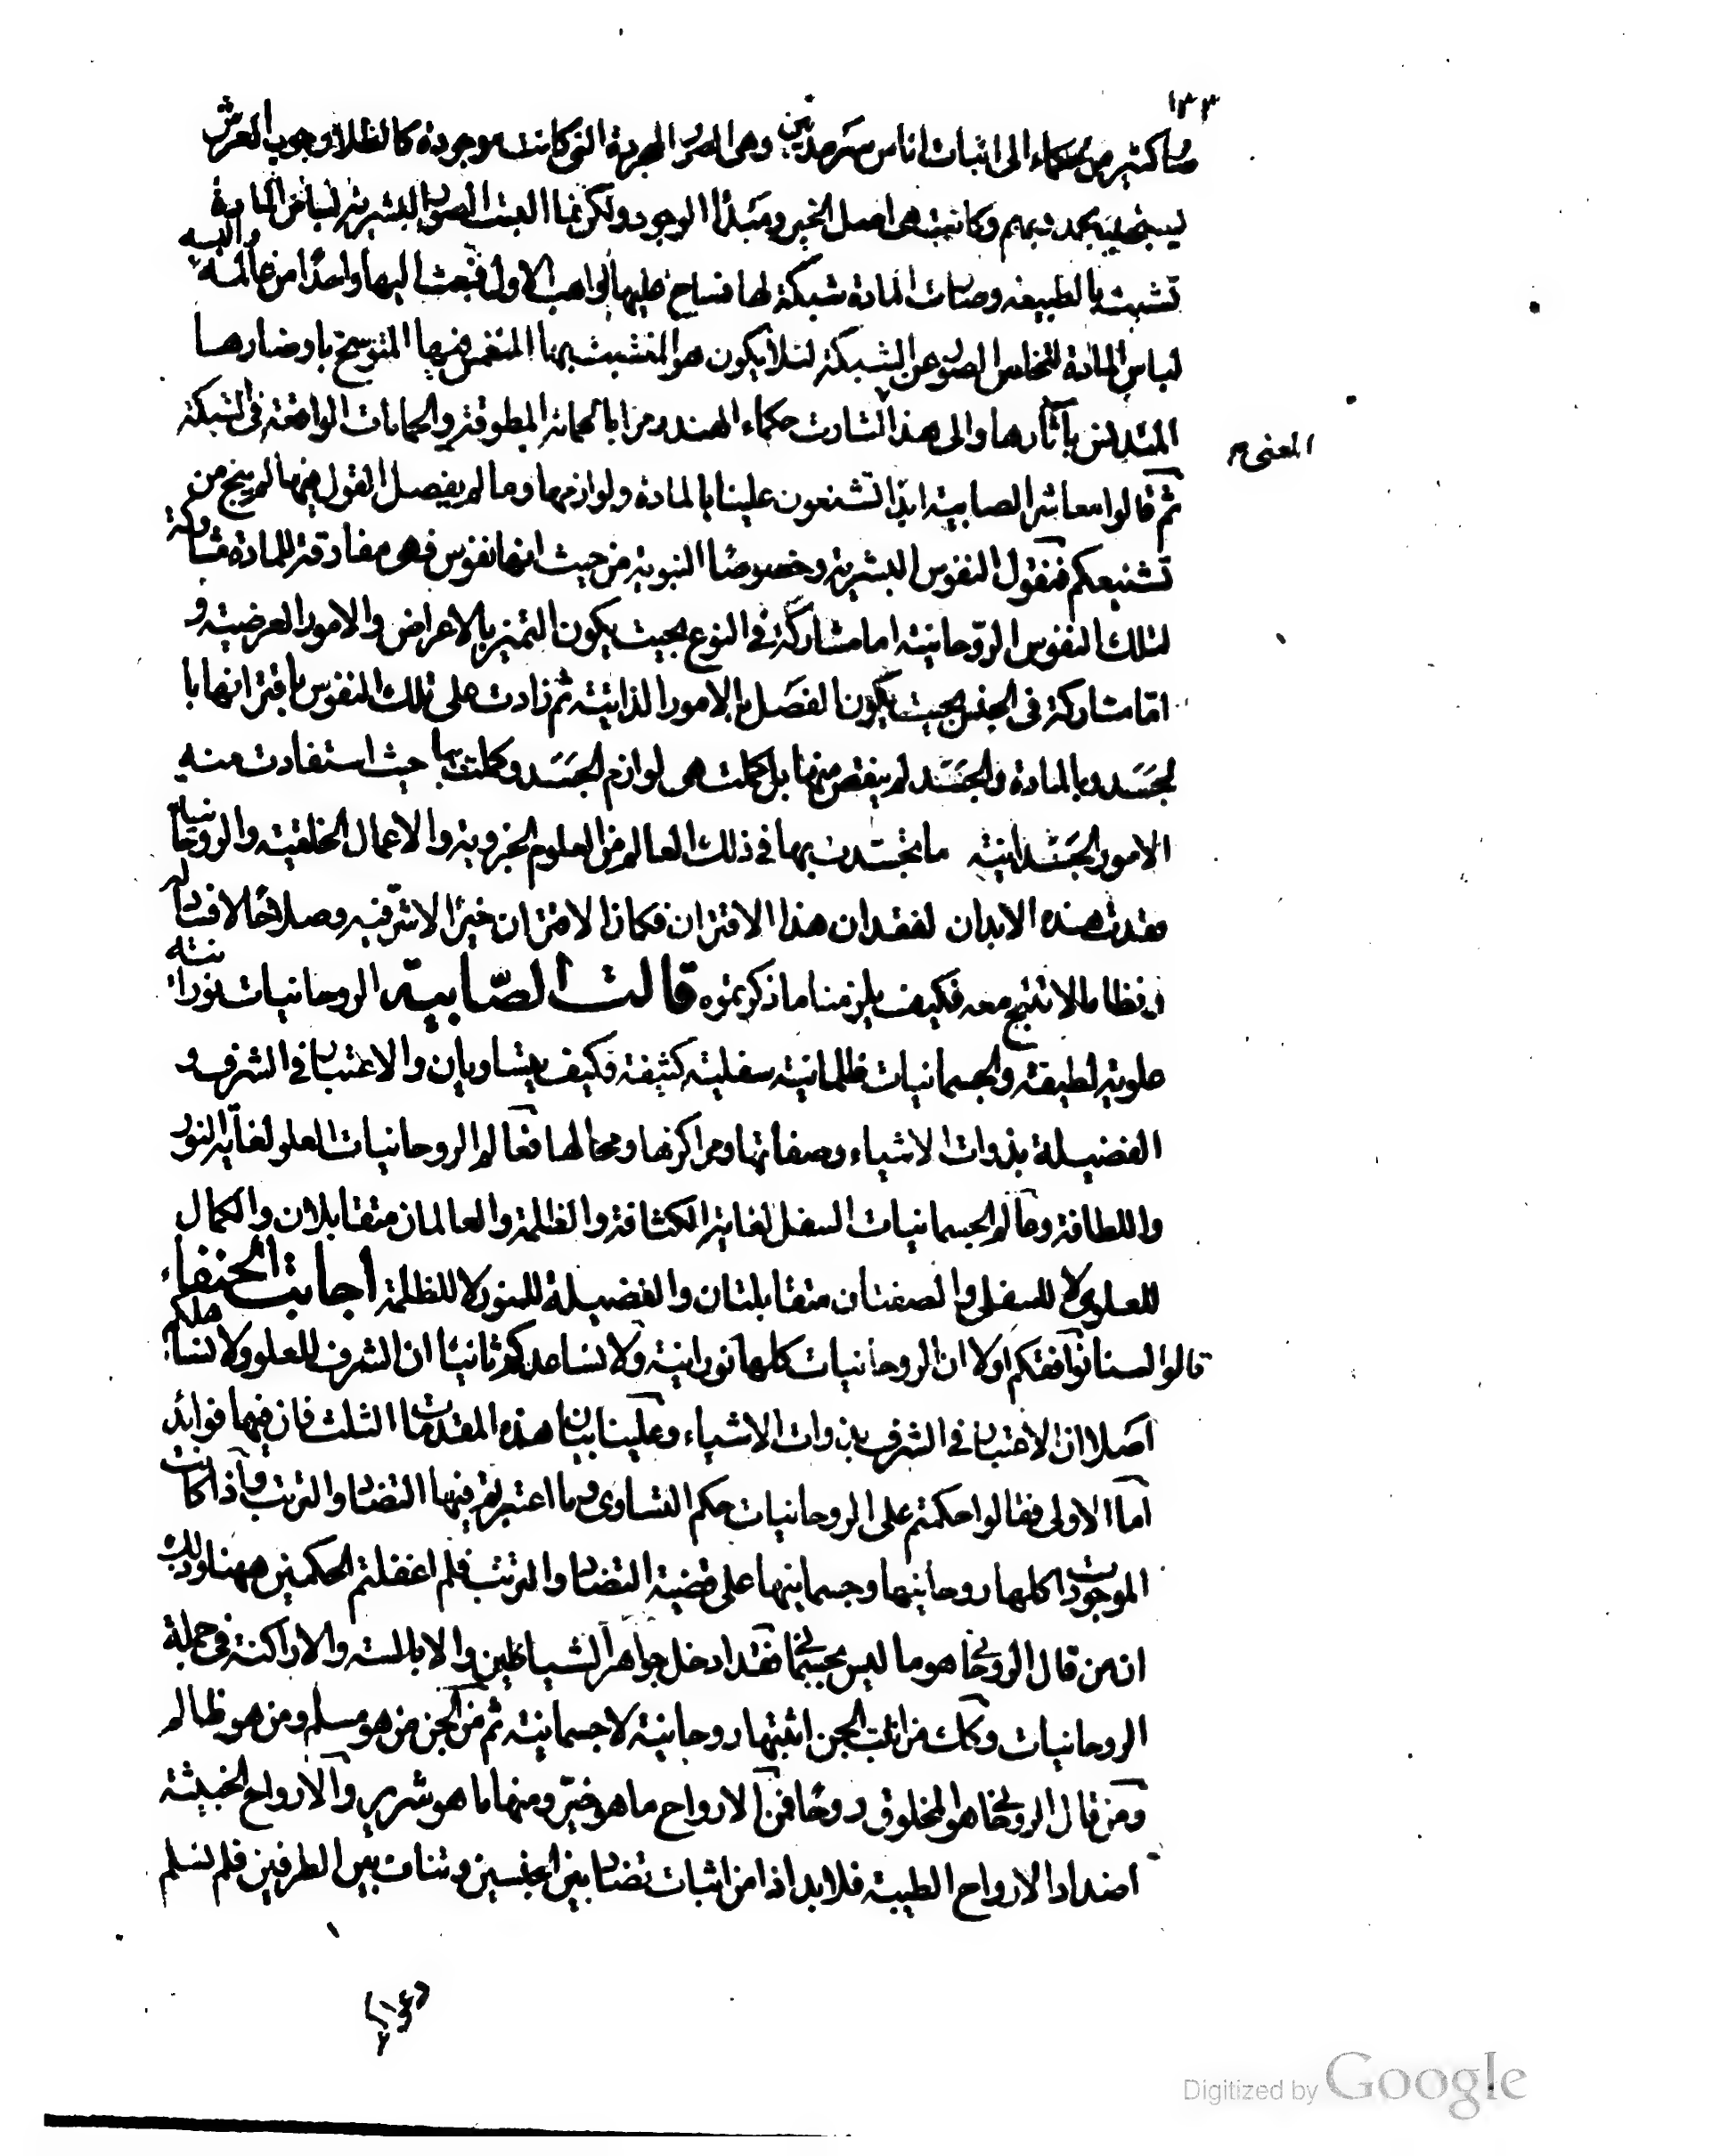 ١٣٣
صار كثير من الحكماء الى اثبات اناس سرمديين وهى الصور المجردة التى كانت موجودة كالظلال حول العرش
يسبحون بحمد ربهم وكانت هى اصل الخير ومبدأ الوجود ولكن لما البست الصور البشرية لباس المادة
تشبثت بالطبيعة وصارت المادة شبكة لها فساح عليها الواهب الاول فبعث اليها واحدًا من عالمه والبسه
لباس المادة لتخلص الصور عن الشبكة لئلا يكون هو المتشبث بها المنغمس فيها المتوسخ باوضارها
المتدنس بآثارها والى هذا اشارت حكماء الهند رمزا بالحمامة المطوقة والحمامات الواقعة فى الشبكة
المعنى
ثم قالوا معاشر الصابية ابدًا تشنعون علينا بالمادة ولوازمها وما لم يفصل القول فيها لم ينج من
تشنيعكم فنقول النفوس البشرية وخصوصًا النبوية من حيث انها نفوس فهى مفارقة للمادة مشاركة
لتلك النفوس الروحانية اما مشاركة فى النوع بحيث يكون التميز بالاعراض والامور العرضية و
اما مشاركة فى الجنس بحيث يكون الفصل بالامور الذاتية ثم زادت على تلك النفوس باقترانها با
لجسد وبالمادة والجسد لم ينقص منها بل كملت هى لوازم الجسد وكملت بها حيث استفادت منه
الامور الجسدانية ما تجسدت بها فى ذلك العالم من العلوم الجزوية والاعمال الخلقية والروحانيات
فقدت هذه الابدان لفقدان هذا الاقتران فكان الاقتران خيرًا لا شر فيه وصلاحًا لا فساد له
ونظاما لا ثبج معه فكيف يلزمنا ما ذكرتموه قالت الصّابية الروحانيات نورانية
علوية لطيفة والجسمانيات ظلمانية سفلية كثيفة فكيف يتساويان والاعتبار فى الشرف و
الفضيلة بذوات الاشياء وصفاتها ومراكزها ومحالها فعالم الروحانيات العلو لغاية النور
واللطافة وعالم الجسمانيات السفل لغاية الكثافة والظلمة والعالمان متقابلان والكمال
للعلوى لا للسفلى والصفتان متقابلتان والفضيلة للنور لا للظلمة اجابت الحنفاء
قالوا لسنا نوافقكم اولا ان الروحانيات كلها نورانية ولا نساعدكم ثانيًا ان الشرف للعلو ولا نساهلكم
اصلا ان الاعتبار فى الشرف بذوات الاشياء وعلينا بيان هذه المقدمات الثلث فان فيها فوائد
اما الاولى فقالوا حكمتم على الروحانيات حكم التساوى وما اعتبرتم فيها التضاد والترتب واذا كانت
الموجودات كلها روحانيها وجسمانيها على قضية التضاد والترتب فلم اغفلتم الحكمين ههنا وذلك
ان من قال الروحانى هو ما ليس بجسمانى فقد ادخل جواهر الشياطين والابالسة والاراكنة فى جملة
الروحانيات وكك من اثبت الجن اثبتها روحانية لا جسمانية ثم من الجن من هو مسلم ومن هو ظالم
ومن قال الروحانى هو المخلوق روحًا فمن الارواح ما هو خيّر ومنها ما هو شرير والارواح الخبيثة
اضداد الارواح الطيبة فلا بد اذا من اثبات تضاد بين الجنسين وتناف بين الطرفين فلم نسلم
Digitized by Google